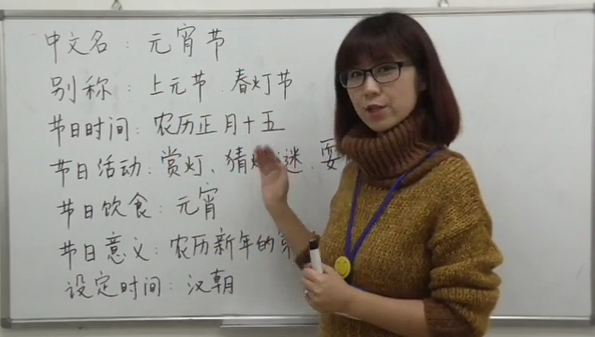 中文名：元宵节
别称：上元节、春灯节
节日时间：农历正月十五
节日活动：赏灯、猜 谜、耍
节日饮食：元宵
节日意义：农历新年的第
设定时间：汉朝